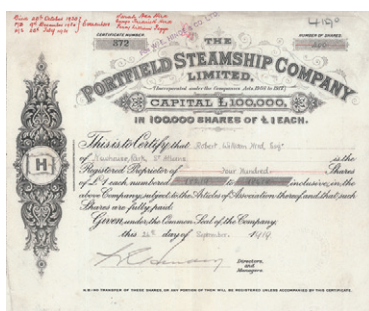 Died 29th October 1938
419°
CERTIFICATE NUMBER
NUMBER OF SHARES
372
THE
PORTFIELD STEAMSHIP COMPANY
LIMITED.
(Incorporated under the Companies Acts, 1908 to 1917)
CAPITAL £100,000,
IN 100,000 SHARES OF £1 EACH.
This is to Certify that Robert William Hind Esq
of Newhouse Park, St Albans is the
Registered Proprietor of Four Hundred Shares
of £1 each numbered to inclusive, in the
above Company, subject to the Articles of Association thereof, and that such
Shares are fully paid.
Given under the Common Seal of the Company
this 24th day of September 1919
H
Directors
and
Managers.
N.B.—NO TRANSFER OF THESE SHARES, OR ANY PORTION OF THEM WILL BE REGISTERED UNLESS ACCOMPANIED BY THIS CERTIFICATE.